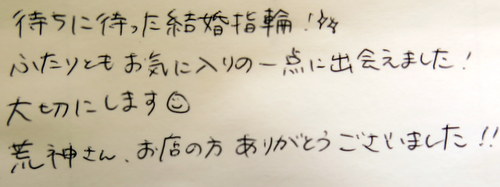 待ちに待った結婚指輪！☆☆
ふたりともお気に入りの一点に出会えました！
大切にします☺
荒神さん、お店の方 ありがとうございました!!